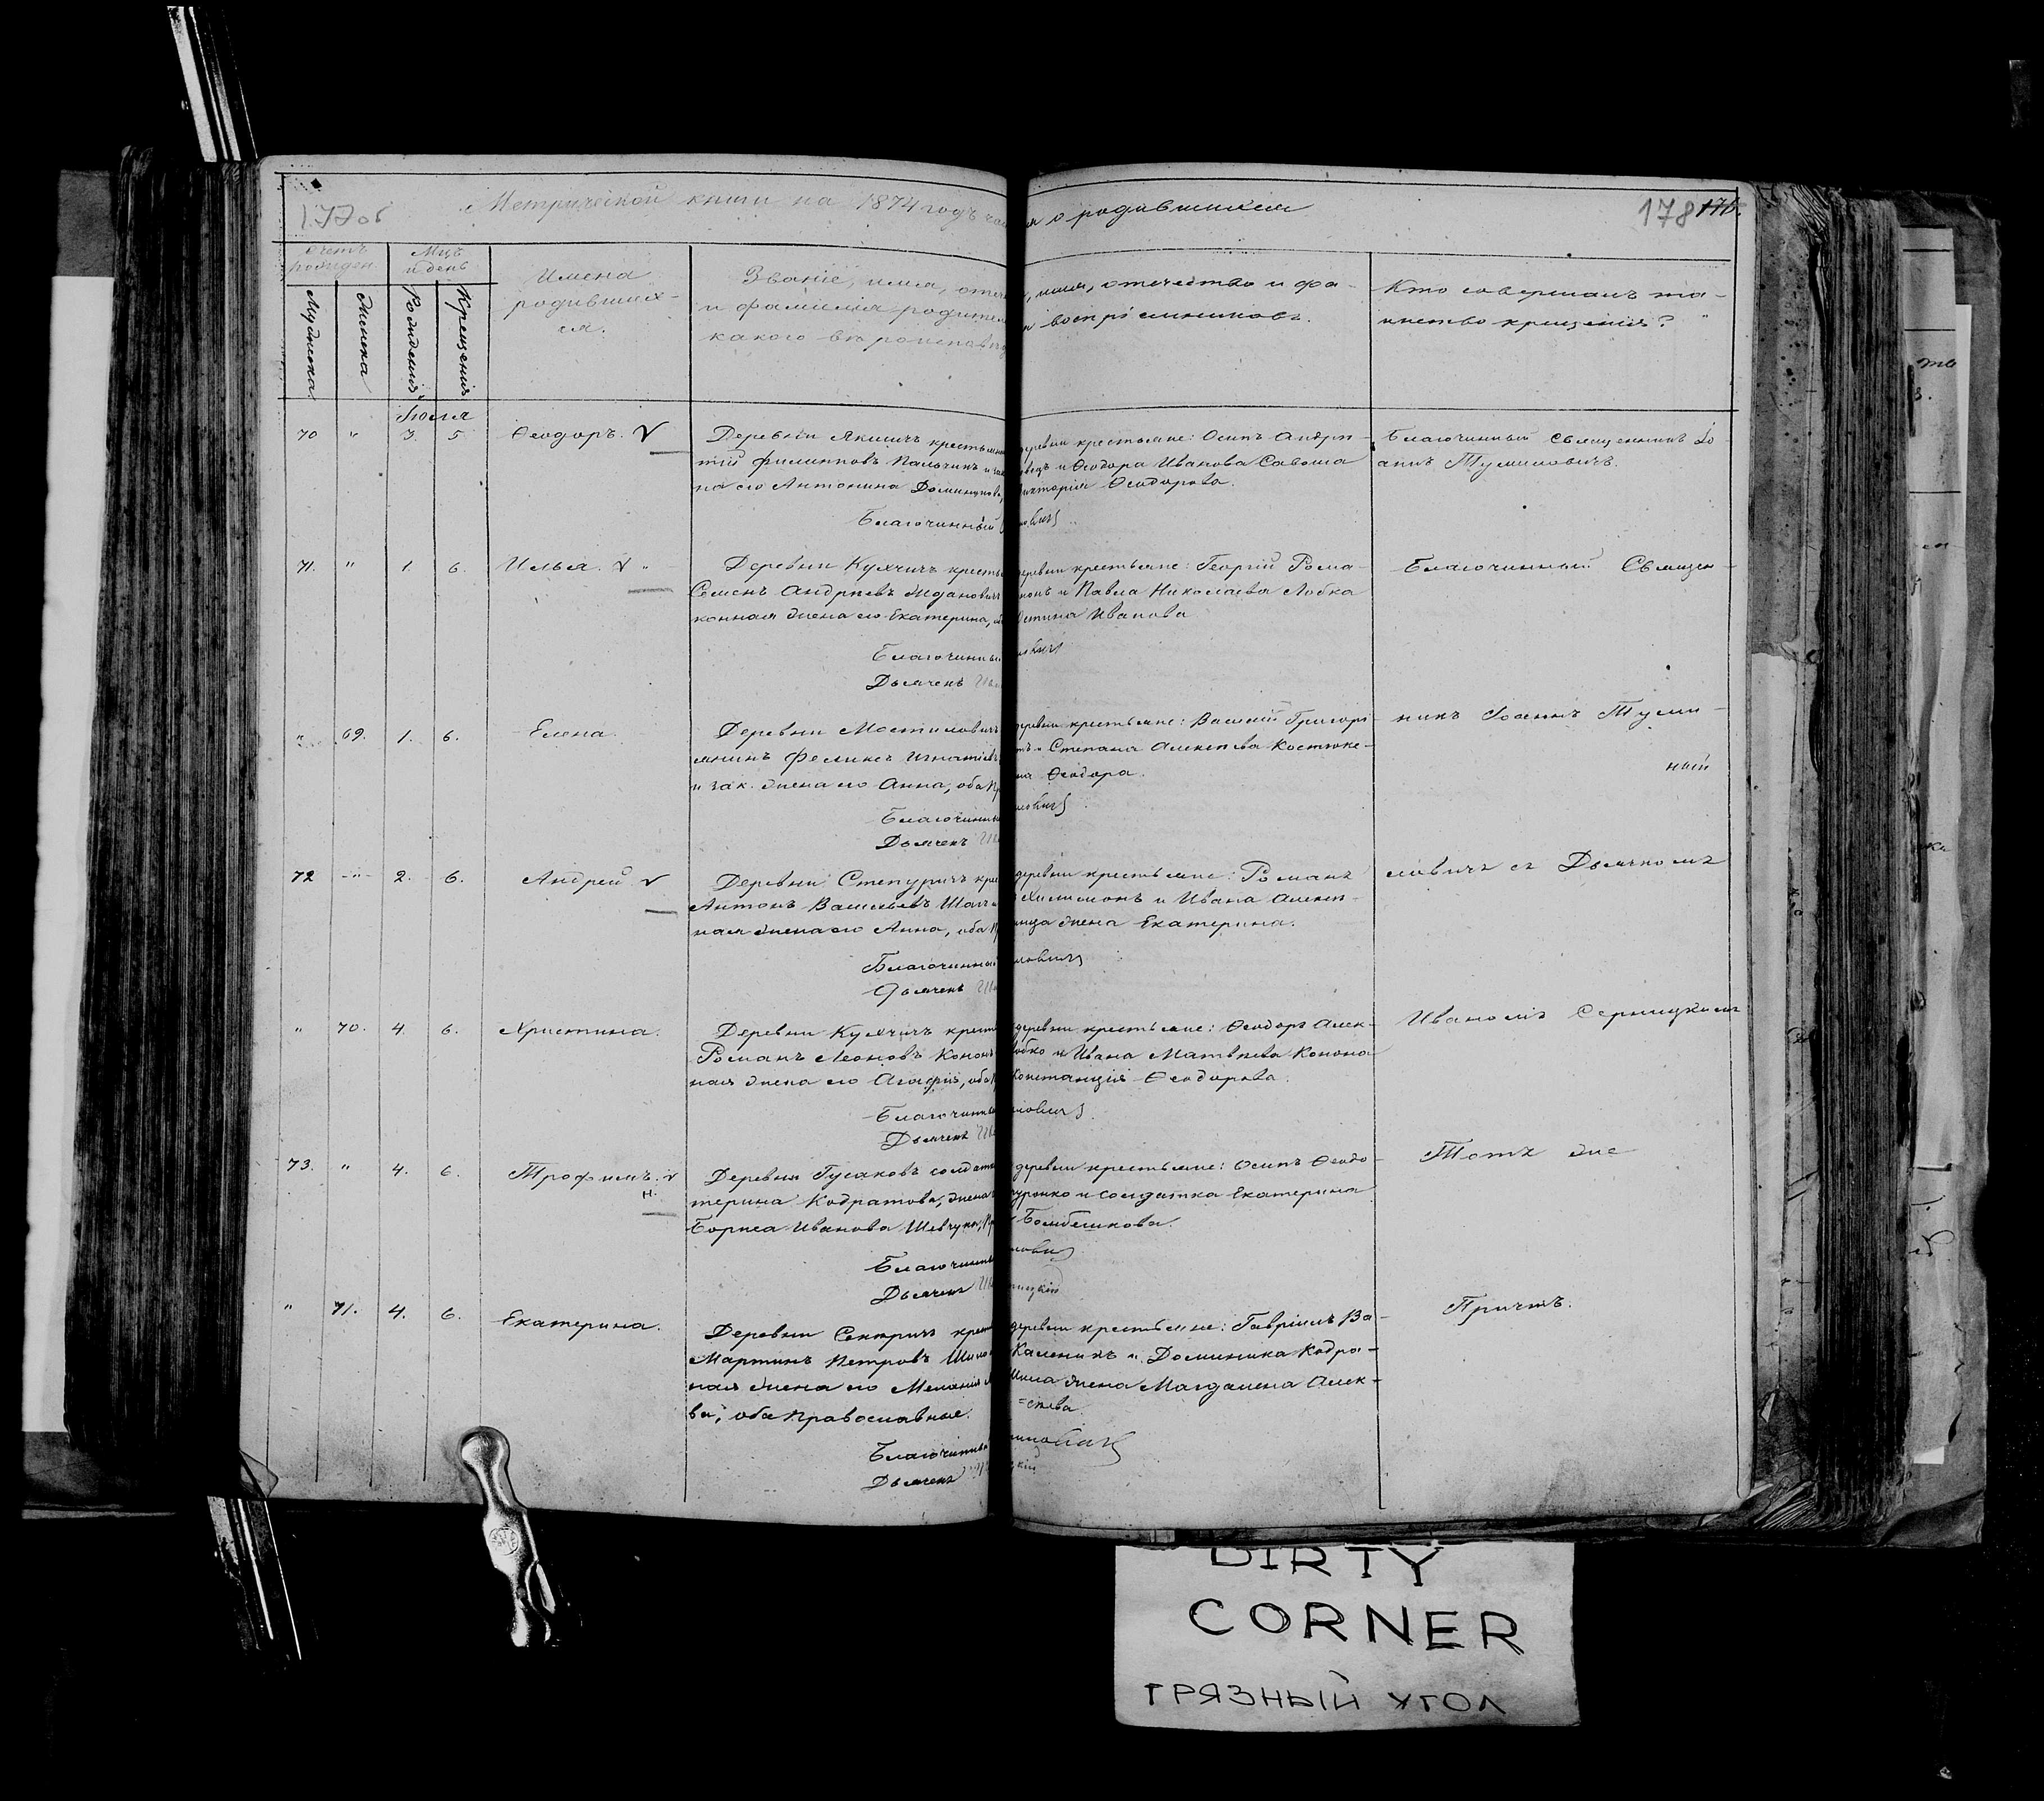 177об
Метрической книги на 1874 годъ час
я о родившихся
178 176.
Счетъ рожден
Мужеска
Женска
Мцъ и день
Рожденія
Крещенія
Имена
родивших-
ся.
Званіе, имя, отче
и фамилія родител
какого вѣроисповѣд
, имя, отечество и фа-
и воспріемниковъ.
Кто совершалъ та-
инство крещенія?
Іюля
70 " 3. 5 Ѳеодоръ. V
Деревни Якшичъ крестьянин
тій Филипповъ Пальчикъ и зак
на его Антонина Доминикова,
Благочинный
деревни крестьяне: Осипъ Андре-
вецъ и Ѳеодора Иванова Саваша
Викторія Ѳеодорова.
овичъ
Благочинный Священникъ Іо
аннъ Тумиловичъ.
71. " 1. 6. Илья. V "
Деревни Кулчичъ кресть
Семенъ Андреевъ Ждановичъ
конная жена его Екатерина, об
Благочинны
Дьячекъ
деревни крестьяне: Георгій Рома-
нонъ и Павла Николаева Лобка
Устина Иванова
овичъ
Благочинный Священ-
" 69. 1. 6. Елена.
Деревни Мостиловичъ
янинъ Феликсъ Игнатіевъ
и зак. жена его Анна, оба пр
Благочинны
Дьячекъ
деревни крестьяне: Василій Григорі-
тъ и Степана Алексѣева Костюке-
на Ѳеодора.
мовичъ
никъ Іоаннъ Туми-
ный
72 -"- 2. 6. Андрей V
Деревни Степуричъ кре
Антонъ Васильевъ
ная жена его Анна, оба п
Благочинный
Дьячекъ
деревни крестьяне: Романъ
Хилимонъ и Ивана Алексѣ-
жена Екатерина.
мовичъ
ловичъ съ Дьячкомъ
" 70. 4. 6. Христина.
Деревни Кулчичъ крест
Романъ Леоновъ Конон
ная жена его Агафія, оба п
Благочинны
Дьячекъ
деревни крестьяне: Ѳеодоръ Алек-
Лобко и Ивана Матвѣева Конона
Констанція Ѳеодорова.
мовичъ
Иваномъ Серницкимъ
73. " 4. 6. Трофимъ. V
н.
Деревни Гусаковъ солдатк
терина Кодратова, жена
Бориса Иванова Шевчука, пр
Благочинны
Дьячекъ
деревни крестьяне: Осипъ Ѳеодо-
чуронко и солдатка Екатерина
Бомбешкова.
ловичъ
ницкій
Тотъ же
" 71. 4. 6. Екатерина.
Деревни Секеричъ крест
Мартинъ Петровъ Шило
ная жена его Меланія
ва, оба православные.
Благочинны
Дьячекъ
деревни крестьяне: Гавріилъ Ва-
Каленикъ и Доминика Кодра-
Шила жена Магдалена Алек-
=сѣева.
миловичъ
цкій
Причтъ.
DIRTY
CORNER
ГРЯЗНЫЙ УГОЛ